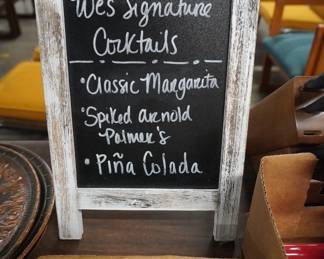 Wes Signature
Cocktails
• Classic Margarita
• Spiked Arnold
Palmer's
• Piña Colada